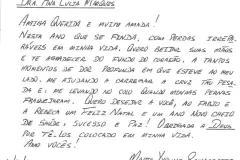 DRA. ANA LUCIA MARQUES
AMIGA QUERIDA E MUITO AMADA!
NESTE ANO QUE SE FINDA, COM PERDAS IRREPA-
RÁVEIS EM MINHA VIDA. QUERO BEIJAR SUAS MÃOS
E TE AGRADECER DO FUNDO DO CORAÇÃO, A TANTOS
MOMENTOS DE DOR PROFUNDA EM QUE ESTEVE AO MEU
LADO, ME AJUDANDO A CARREGAR A CRUZ TÃO PESA-
DA E, ME LEVANDO NO COLO QUANDO MINHAS PERNAS
FRAQUEJARAM. QUERO DESEJAR A VOCÊ, AO FABIO E
A REBECA UM FELIZ NATAL E UM ANO NOVO CHEIO
DE SAÚDE, SUCESSO E PAZ! OBRIGADA A DEUS
POR TÊ-LOS COLOCADO EM MINHA VIDA.
AMO VOCÊS!